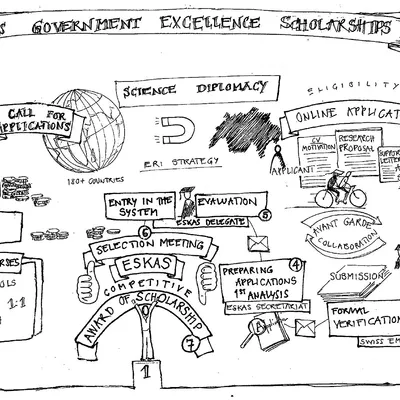 S GOVERNMENT EXCELLENCE SCHOLARSHIPS
CALL FOR
APPLICATIONS
180+ COUNTRIES
SCIENCE DIPLOMACY
ERI STRATEGY
ELIGIBILITY
ONLINE APPLICAT
CV
MOTIVATION
RESEARCH
PROPOSAL
SUPPORT
LETTER
APPLICANT
AVANT GARDE
COLLABORATION
SUBMISSION
FORMAL
VERIFICATION
SWISS EM
4
PREPARING
APPLICATIONS
1ST ANALYSIS
ESKAS SECRETARIAT
EVALUATION
ESKAS DELEGATE
5
ENTRY IN THE
SYSTEM
6
SELECTION MEETING
ESKAS
COMPETITIVE
AWARD OF SCHOLARSHIP
7
1
RSES
OLS
1:1